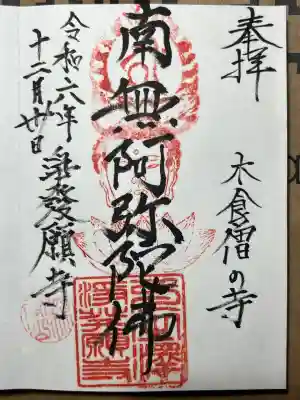 奉拝
木食僧の寺
南無阿弥陀佛
発願寺
令和六年
十二月廿日